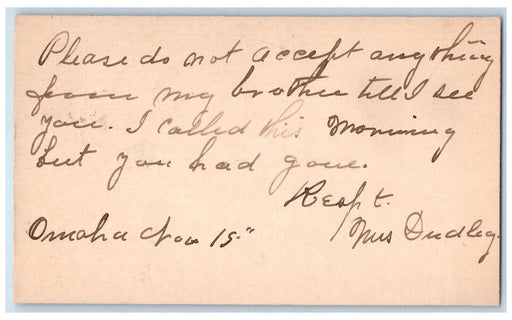 Please do not accept anything
from my brother till I see
you. I called this Morning
but you had gone.
Respt.
Omaha Nov 15" Mrs Dudley.